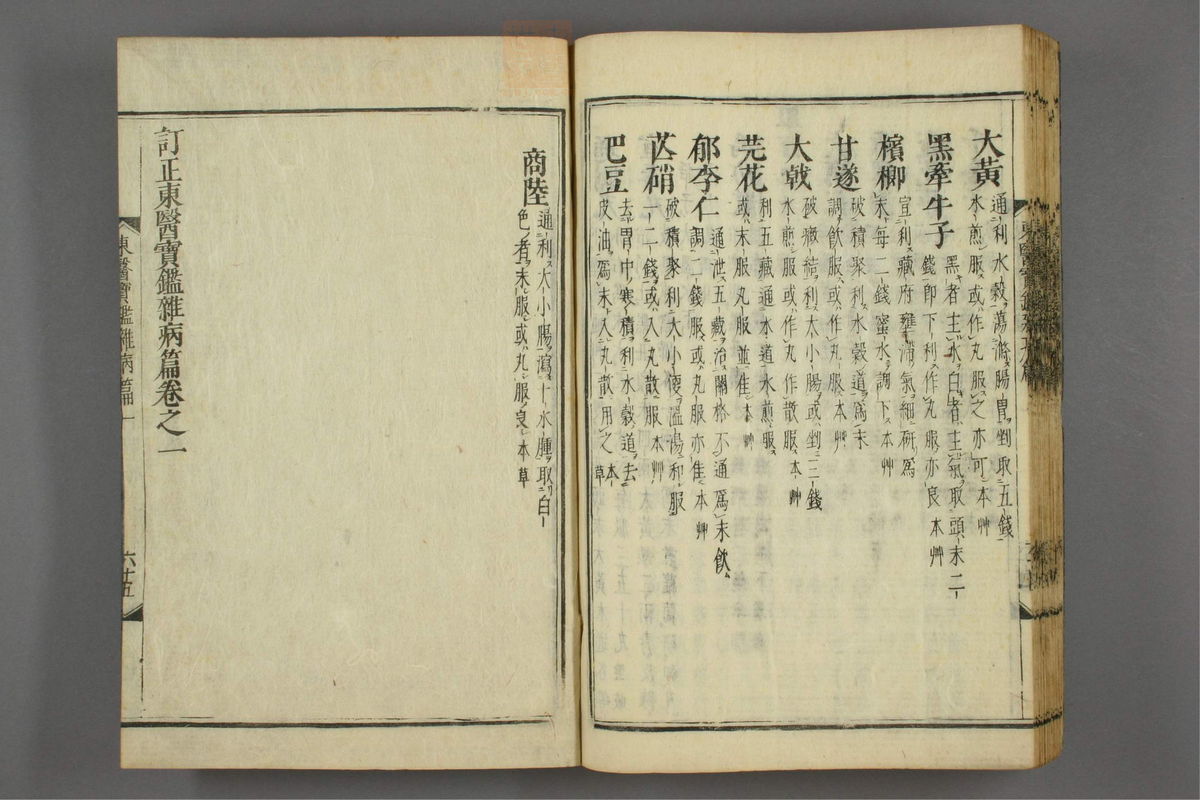 大黃
通利水穀蕩滌腸胃剉取五錢
水煎服或作丸服之亦可本艸
黑牽牛子
黑者主水白者主氣取頭末二
錢卽下利作丸服亦良本艸
檳榔
宣利藏府壅滯氣細硏爲
末每二錢蜜水調下本艸
甘遂
破積聚利水穀道爲末
調飮服或作丸服本艸
大戟
破癥結利大小腸或剉二三錢
水煎服或作丸作散服本艸
芫花
利五藏通水道水煎服
或末服丸服並佳本艸
郁李仁
通泄五藏治關格不通爲末飮
調二錢服或丸服亦佳本艸
芒硝
破積聚利大小便溫湯和服
一二錢或入丸散服本艸
巴豆
去胃中寒積利水穀道去
皮油爲末入丸散用之本草
商陸
通利大小腸瀉十水腫取白
色者末服或丸服良本草
訂正東醫寶鑑雜病篇卷之一
東醫寶鑑雜病篇一
六十五